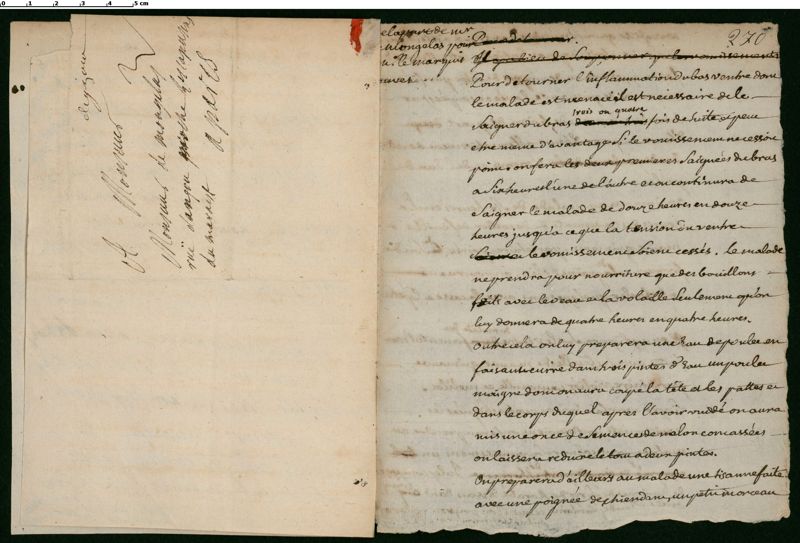 0 1 2 3 4 5 cm
A Monsieur
Monsieur de
ruë d'anjou proche
du marais a paris
de la part de Mr
pour
Mr le marquis
270
Il y a lieu de soupçonner que les vomissements
Pour detourner l'inflammation du bas ventre dont
le malade est menacé il est necessaire de le
trois ou quatre
Saigner du bras fois de suite et peut
etre meme d'avantage Si le vomissement ne cesse
point. on fera les deux premieres Saignées du bras
a Six heures l'une de l'autre et on continura de
Saigner le malade de douze heures en douze
heures jusqu'a ce que la tension du ventre
et le vomissement soient cessés. le malade
ne prendra pour nourriture que des bouillons
faits avec le veau et la volaille Seulement qu'on
luy donnera de quatre heures en quatre heures.
outre cela on luy preparera une Eau de poulet en
faisant cuire dans trois pintes d'Eau un poulet
maigre dont on aura coupé la tête et les pattes et
dans le corps duquel apres l'avoir vuidé on aura
mis une once de Semences de melon concassées
on laissera reduire le tout a deux pintes.
On preparera d'ailleurs au malade une tisanne faite
avec une poignée de chiendent, un petit morceau